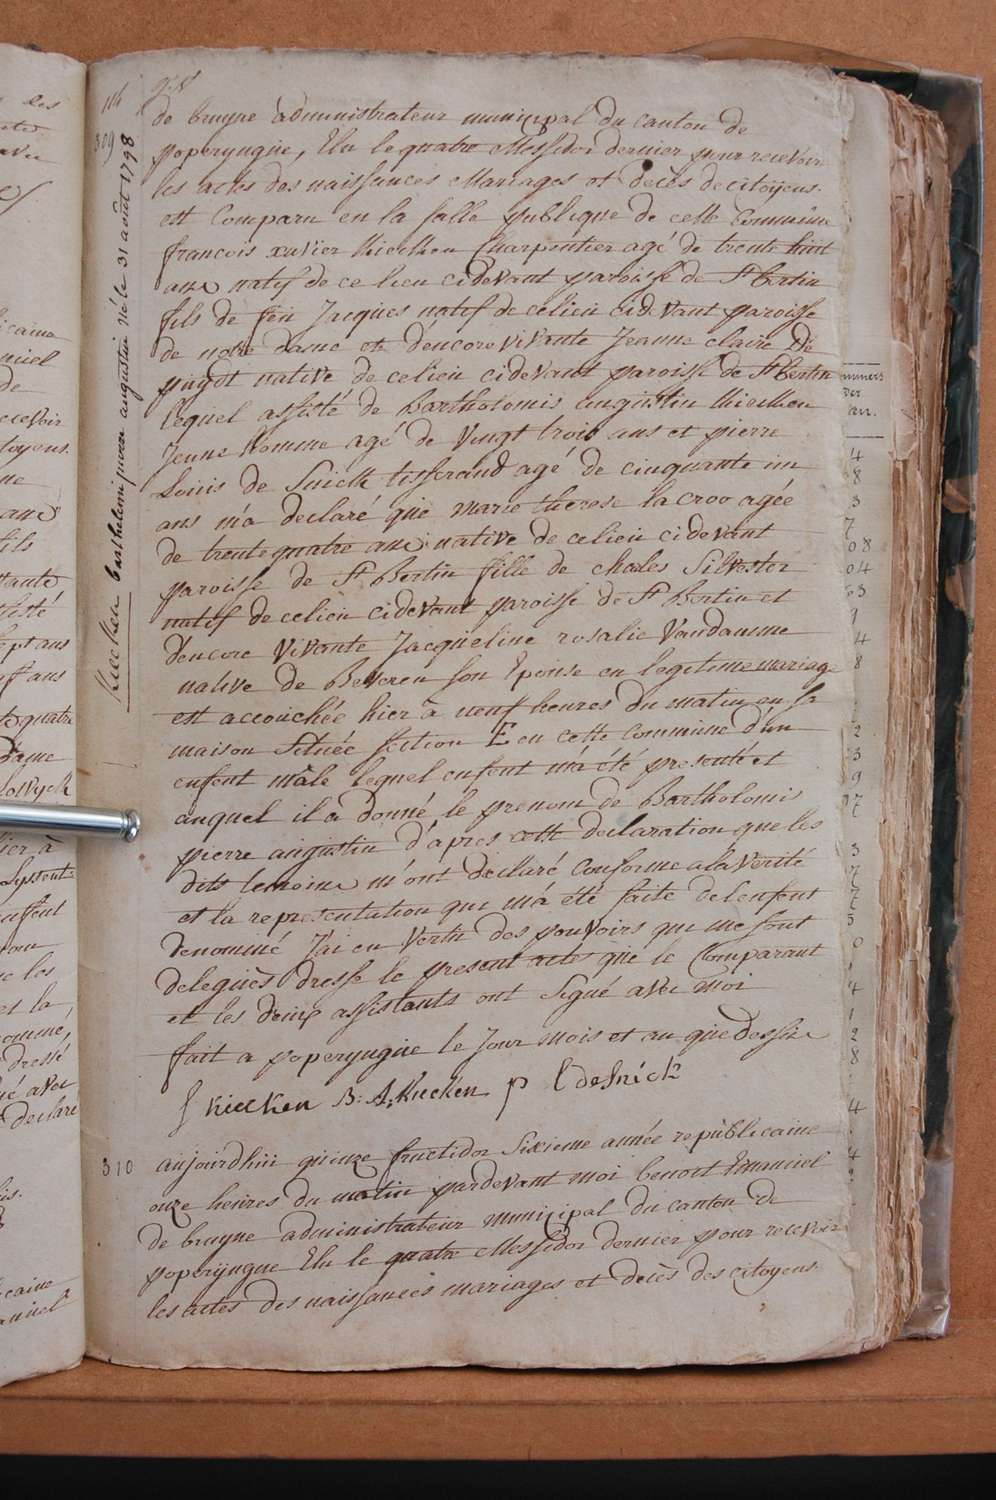 116
309
de bruyne administrateur municipal du canton de
poperyngue, Elu le quatre Messidor dernier pour recevoir
les actes des naissances Mariages et decès de citoÿens.
est Comparu en la salle publique de cette Commune
francois xavier kiecken Charpentier agé de trente huit
ans natif de ce lieu cidevant paroisse de St Bertin
fils de feu Jacques natif de celieu cidevant paroisse
de notre dame et d'encore vivante Jeanne claire De
puydt native de celieu cidevant paroisse de St Bertin
lequel assisté de Bartholomis augustin kiecken
Jeune homme agé de vingt trois ans et pierre
Louis de Snick tisserand agé de cinquante un
ans m'a declaré que marie therese la croo agée
de trentequatre ans native de celieu cidevant
paroisse de St Bertin fille de charles Silvester
natif de celieu cidevant paroisse de St Bertin et
d'encore vivante Jacqueline rosalie Vandamme
native de Beveren son Epouse en legitime mariage
est accouchée hier à neuf heures du matin en sa
maison située section E en cette commune d'un
enfent mâle lequel enfent m'a été presenté et
auquel il a donné le prenom de Bartholomis
pierre augustin d'apres cette declaration que les
dits temoins m'ont declaré conforme a la verité
et la representation qui m'a été faite de lenfent
denominé J'ai en vertu des pouvoirs qui me sont
delegués dressé le present acte que le Comparant
et les deux assistants ont signé avec moi
fait a poperyngue le Jour mois et an que dessus
f kiecken B: A: kiecken p l desnick
310 aujourdhui quinze fructidor Sixieme année republicaine
onze heures du matin pardevant moi benoit Emanuel
de bruyne administrateur municipal du canton de
poperyngue Elu le quatre Messidor dernier pour recevoir
les actes des naissances mariages et decès des citoyens.
kiecken barthelemi pierre augustin né le 31 août 1798